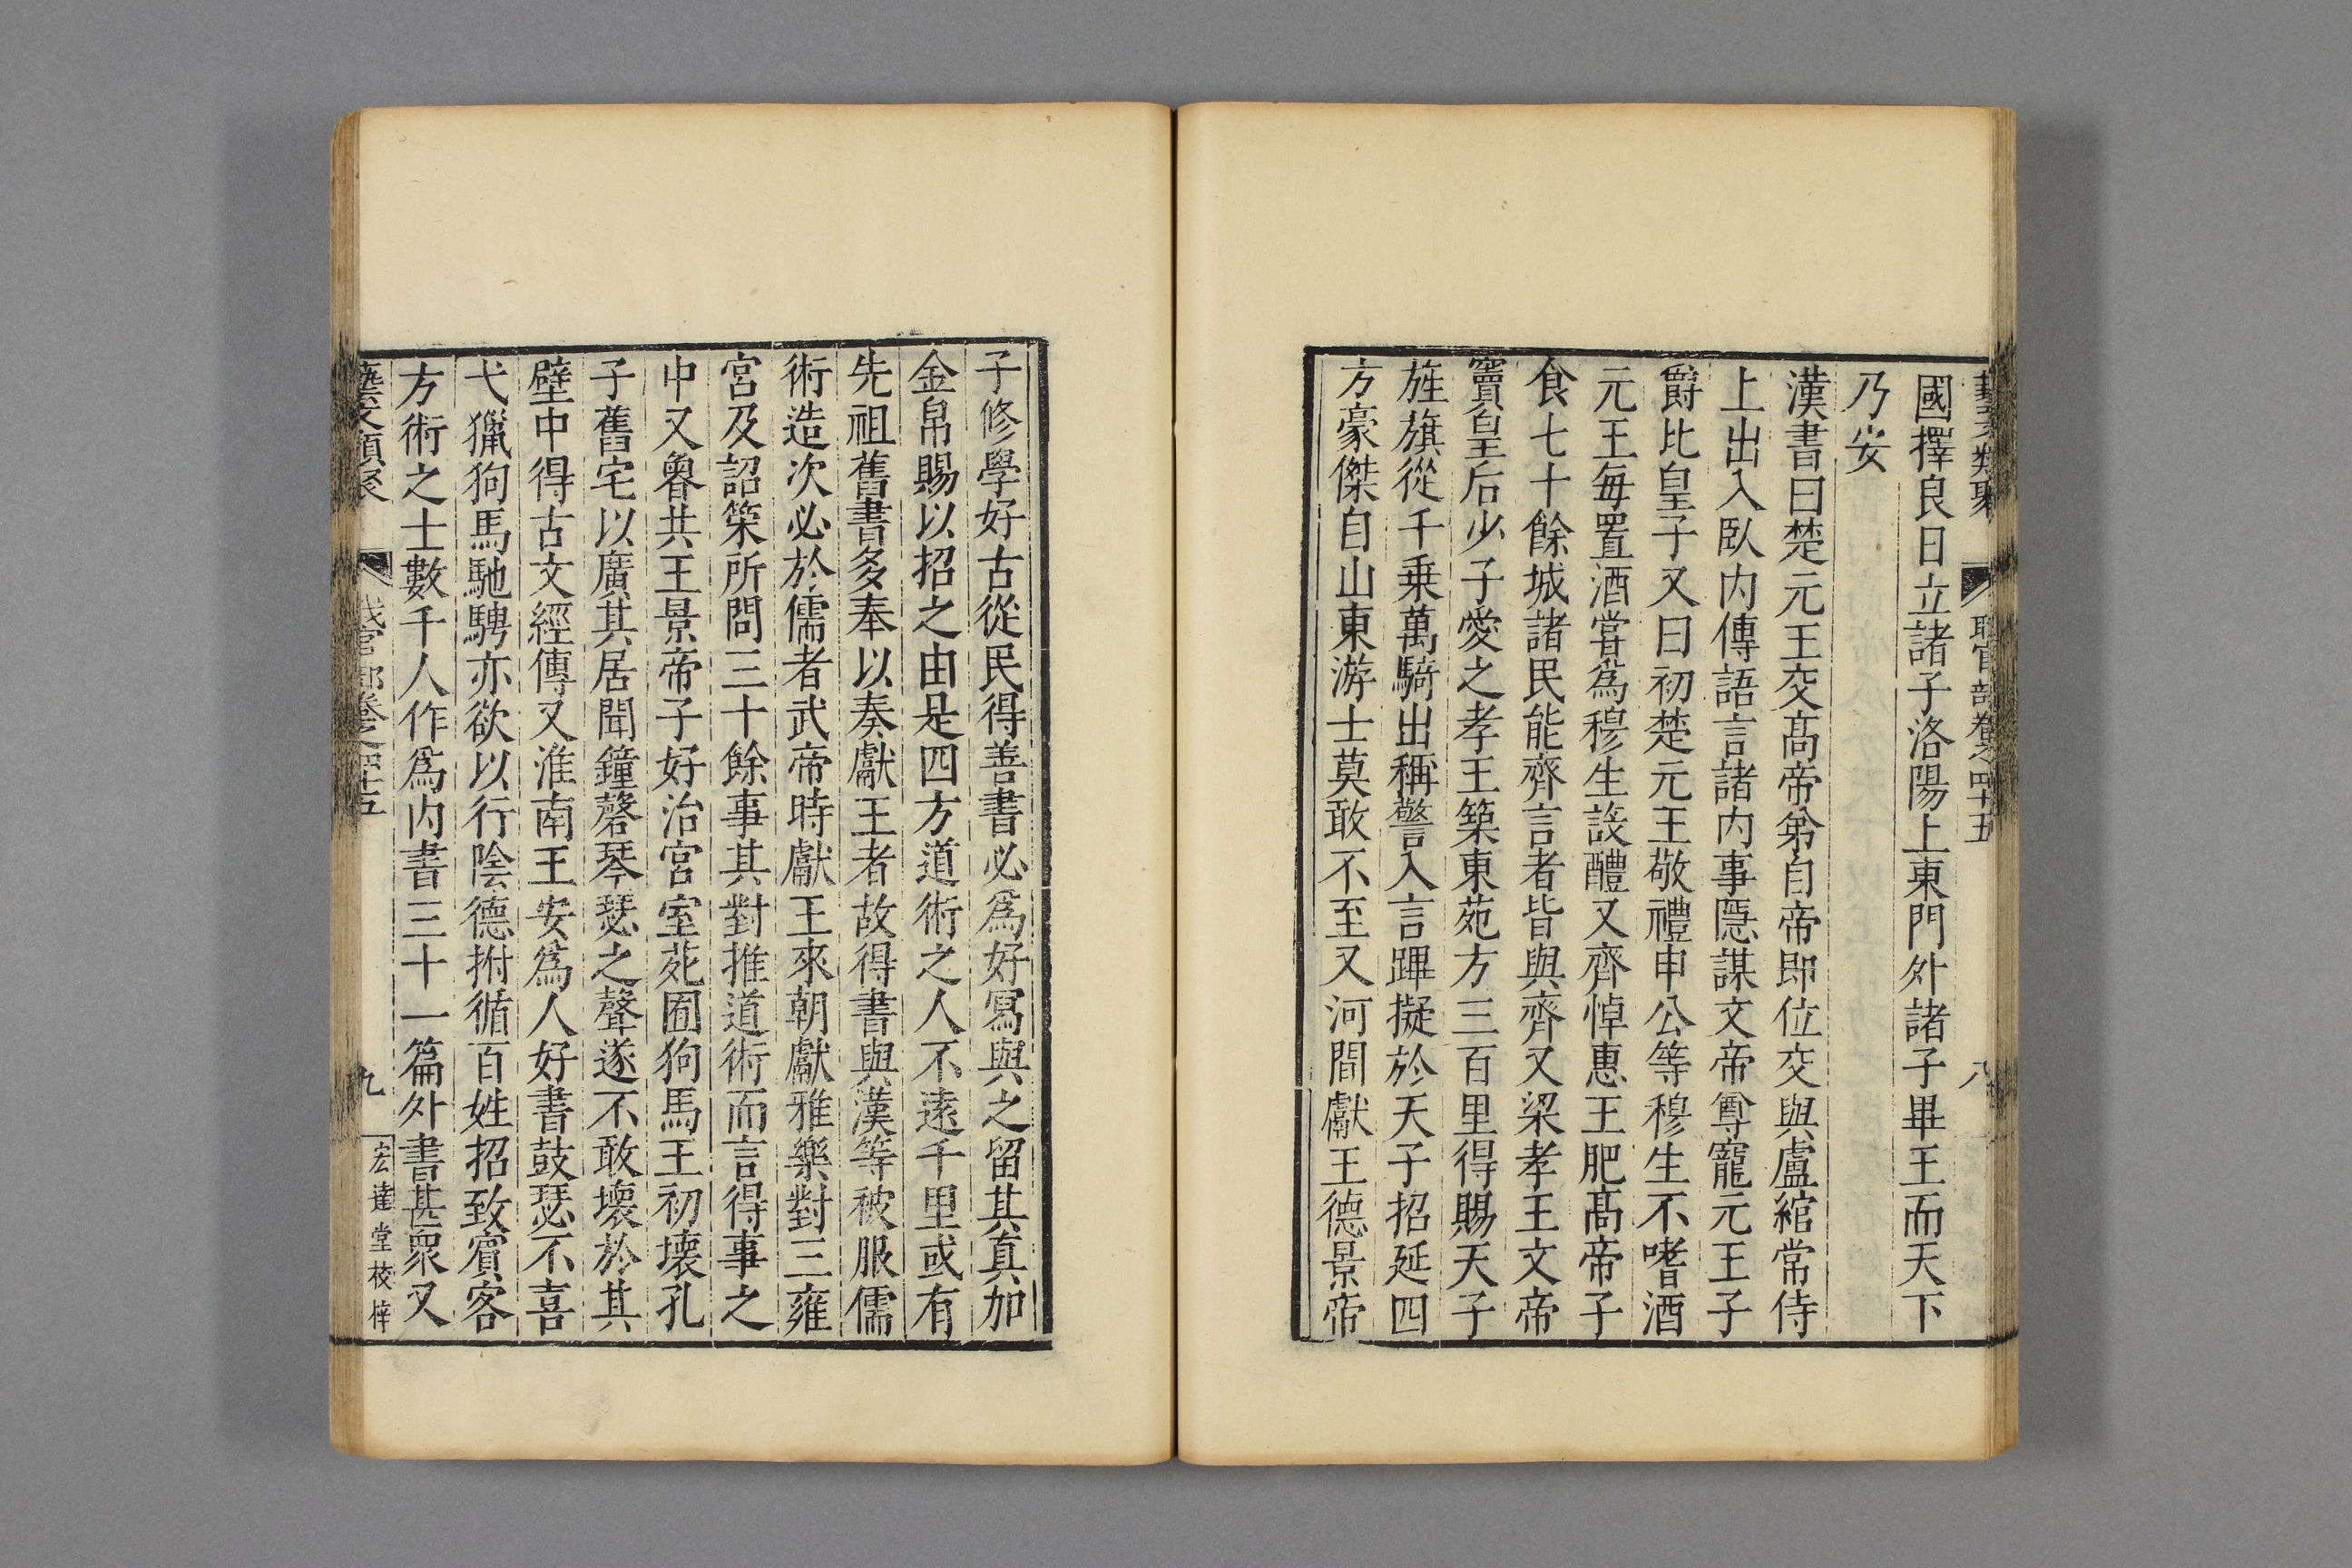 藝文類聚 職官部卷之四十五 八
國擇良日立諸子洛陽上東門外諸子畢王而天下
乃安
漢書曰楚元王交高帝弟自帝即位交與盧綰常侍
上出入臥內傳語言諸內事隱謀文帝尊寵元王子
爵比皇子又曰初楚元王敬禮申公等穆生不嗜酒
元王每置酒嘗爲穆生設醴又齊悼惠王肥高帝子
食七十餘城諸民能齊言者皆與齊又梁孝王文帝
竇皇后少子愛之孝王築東苑方三百里得賜天子
旌旗從千乗萬騎出稱警入言蹕擬於天子招延四
方豪傑自山東游士莫敢不至又河間獻王德景帝
子修學好古從民得善書必爲好寫與之留其真加
金帛賜以招之由是四方道術之人不遠千里或有
先祖舊書多奉以奏獻王者故得書與漢等被服儒
術造次必於儒者武帝時獻王來朝獻雅樂對三雍
宮及詔策所問三十餘事其對推道術而言得事之
中又魯共王景帝子好治宮室苑囿狗馬王初壊孔
子舊宅以廣其居聞鐘磬琴瑟之聲遂不敢壊於其
壁中得古文經傳又淮南王安爲人好書鼓瑟不喜
弋獵狗馬馳騁亦欲以行陰德拊循百姓招致賓客
方術之士數千人作爲內書三十一篇外書甚衆又
藝文類聚 職官部卷之四十五 九 宏達堂校梓